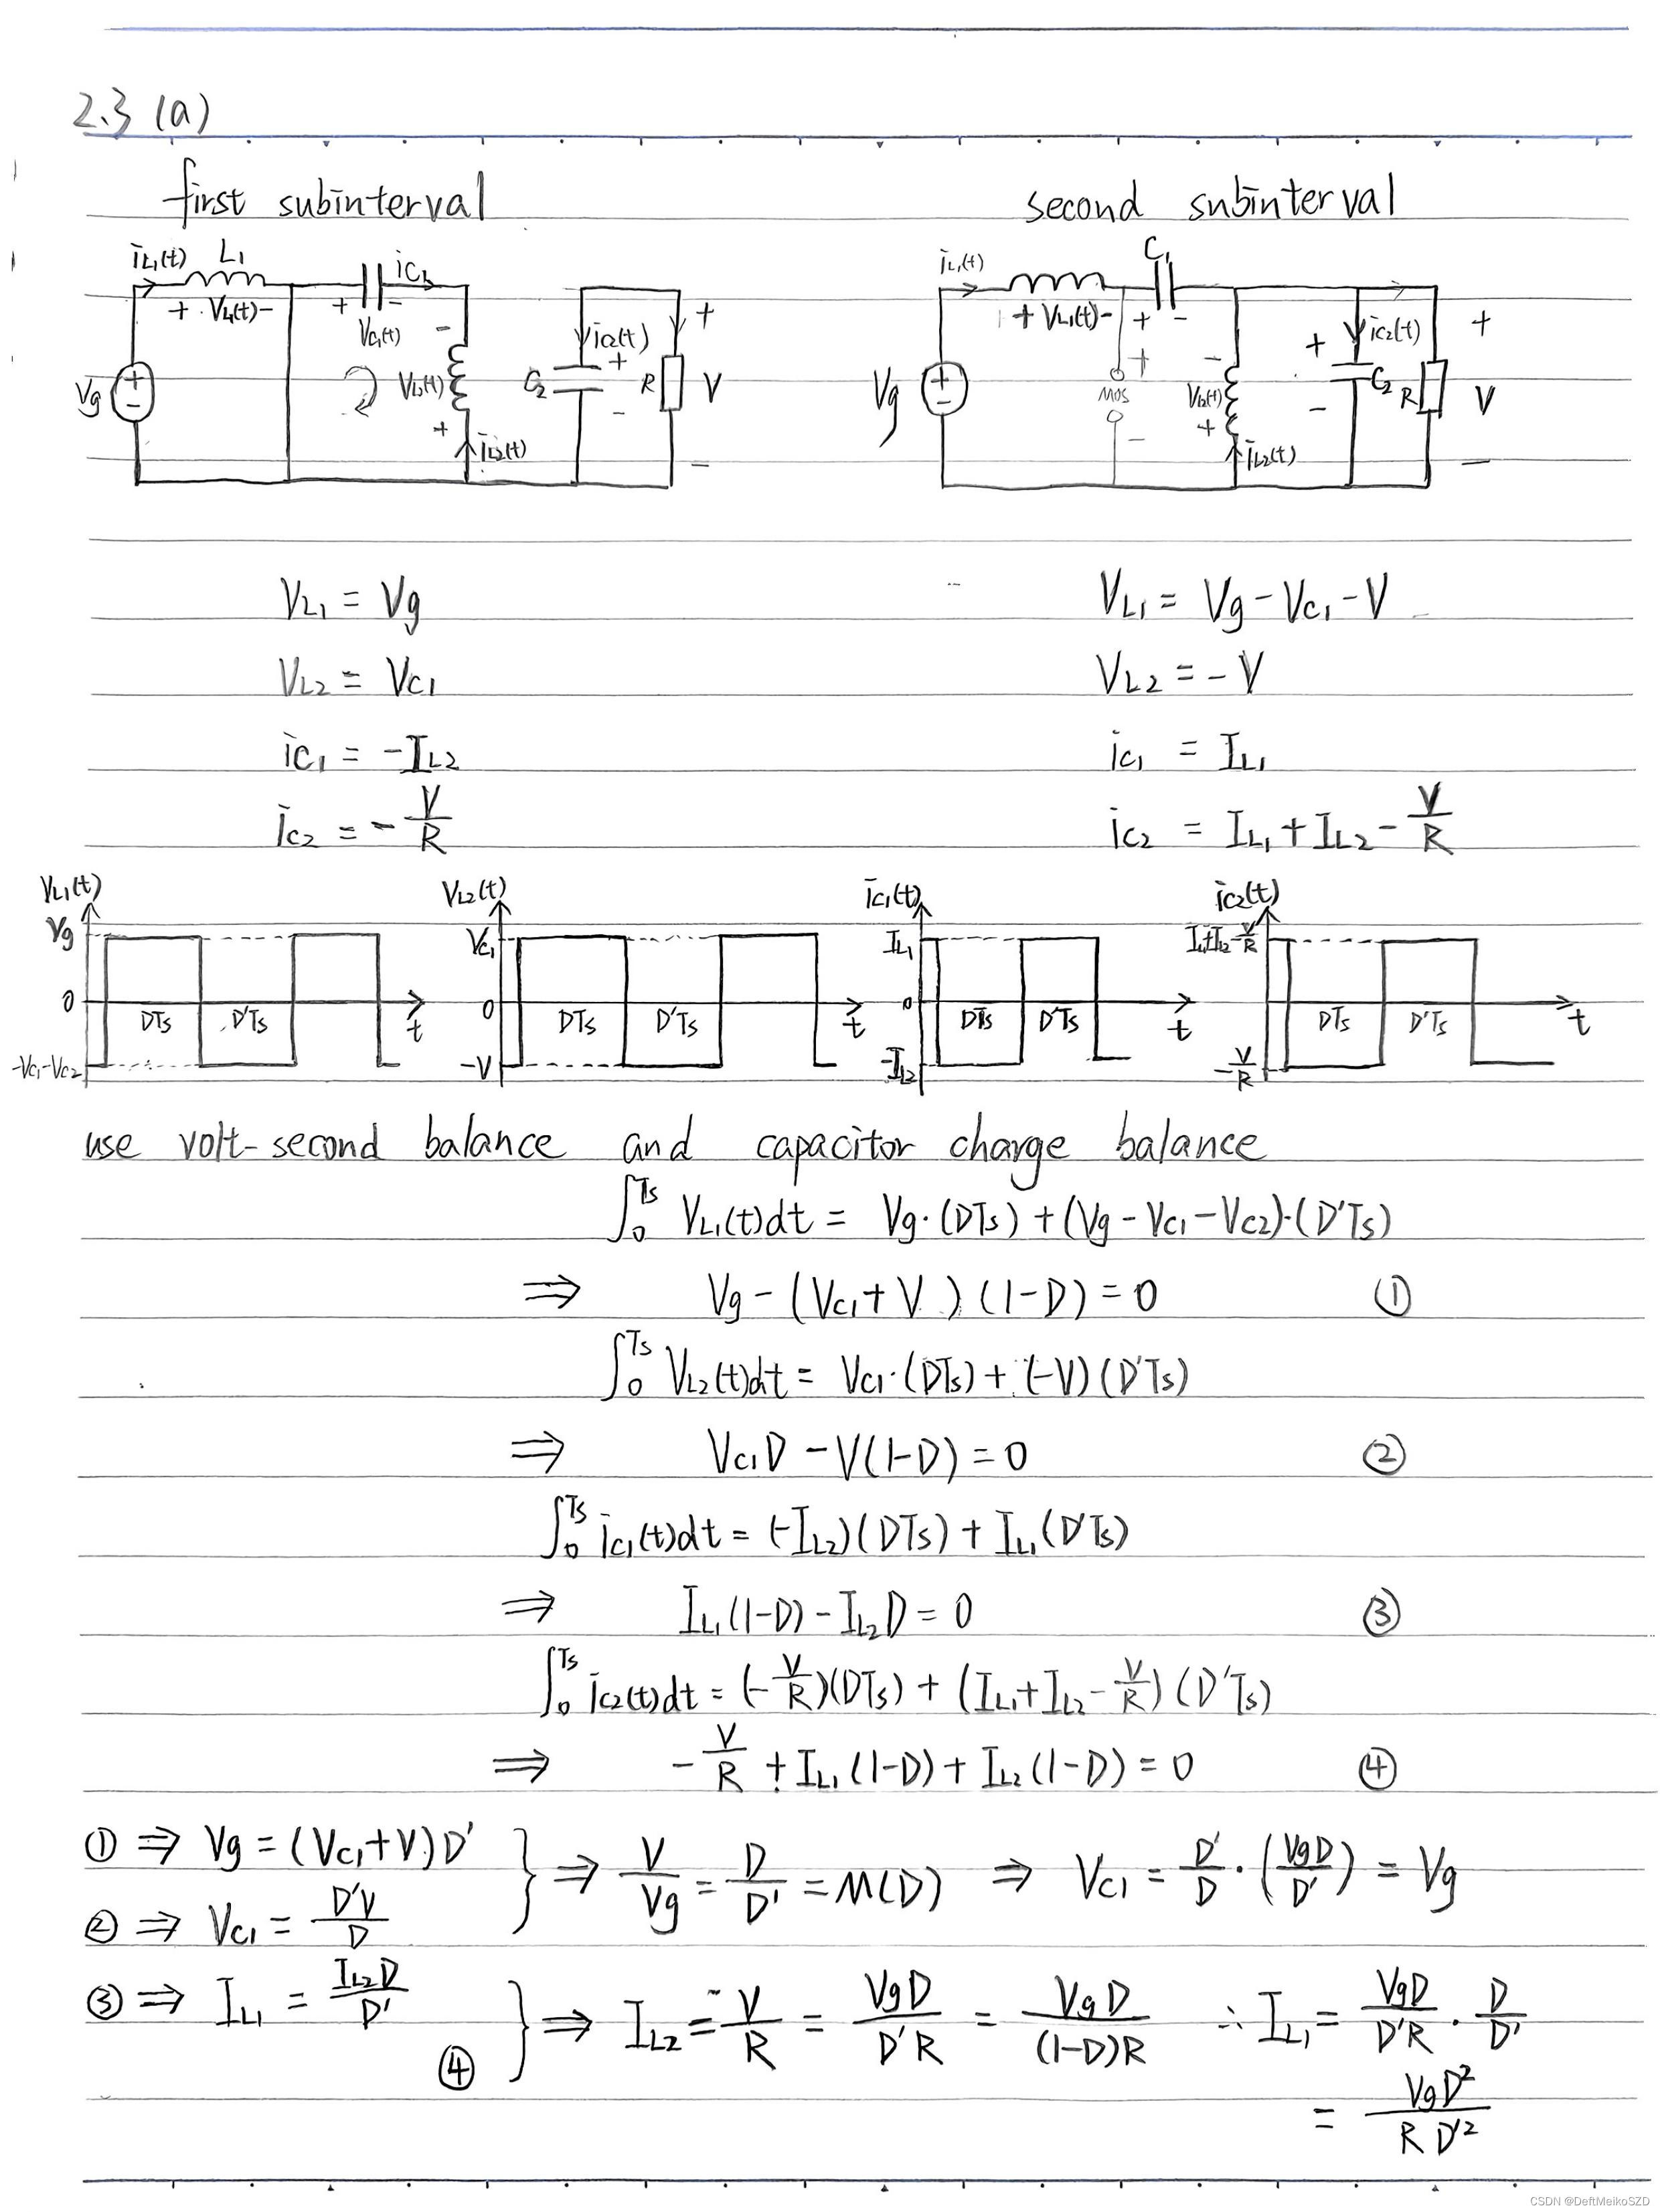 2.3 (a)
first subinterval
second subinterval
iL1(t) L1 iC1
+ VL1(t) -
+ -
VC1(t)
-
VL2(t)
+
iL2(t)
Vg + -
C2
iC2(t)
+
-
R
+
V
-
iL1(t) C1
+ VL1(t) - + -
+
MOS
-
Vg + -
-
VL2(t)
+
iL2(t)
+
-
iC2(t)
C2
R
+
V
-
VL1 = Vg
VL1 = Vg - VC1 - V
VL2 = VC1
VL2 = - V
iC1 = -IL2
iC1 = IL1
iC2 = - V/R
iC2 = IL1 + IL2 - V/R
VL1(t) Vg 0 -VC1-VC2 DTs D'Ts t
VL2(t) VC1 0 -V DTs D'Ts t
iC1(t) IL1 0 -IL2 DTs D'Ts t
iC2(t) I1+IL2-V/R -V/R DTs D'Ts t
use volt-second balance and capacitor charge balance
∫0^Ts VL1(t)dt = Vg·(DTs) + (Vg - VC1 - VC2)·(D'Ts)
⇒ Vg - (VC1 + V ) (1-D) = 0 ①
∫0^Ts VL2(t)dt = VC1·(DTs) + (-V) (D'Ts)
⇒ VC1D - V(1-D) = 0 ②
∫0^Ts iC1(t)dt = (-IL2)(DTs) + IL1(D'Ts)
⇒ IL1(1-D) - IL2D = 0 ③
∫0^Ts iC2(t)dt = (-V/R)(DTs) + (IL1+IL2-V/R) (D'Ts)
⇒ -V/R + IL1(1-D) + IL2(1-D) = 0 ④
① ⇒ Vg = (VC1+V)D'
② ⇒ VC1 = D'V/D
} ⇒ V/Vg = D/D' = M(D) ⇒ VC1 = D'/D · (VgD/D') = Vg
③ ⇒ IL1 = IL2D/D'
④
} ⇒ IL2 = V/R = VgD/D'R = VgD/(1-D)R ∴ IL1 = VgD/D'R · D/D'
= VgD²/RD'²
CSDN @DeftMeikoSZD